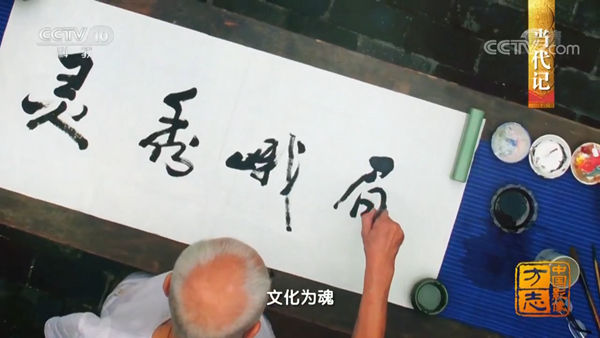 CCTV 10
科教
CCTV.com
当代记
灵秀峨眉
文化为魂
中国影像
方志